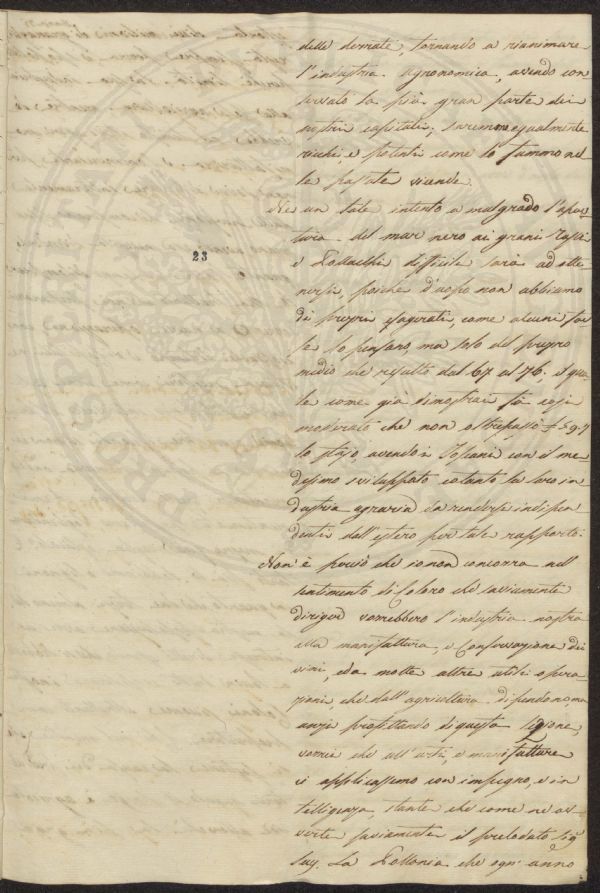 delle derrate, tornando a rianimare
l'industria agronomica, avendo con-
servato la più gran parte dei
nostri capitali; saremmo egualmente
ricchi, e potenti come lo fummo nel-
le passate vicende.
Nè un tale intento a malgrado l'aper-
tura del mar nero ai grani Russi
e Pollacchi difficile sarà ad otte-
nersi, poiche d'uopo non abbiamo
di prezzi esagerati, come alcuni for-
se lo pensano, ma solo del prezzo
medio che resultò dal 67 al 76, il qua-
le come già dimostrai fù così
moderato che non oltrepassò £ 5.9.7
lo stajo, avendo i Toscani con il me-
desimo sviluppato cotanto la loro in-
dustria agraria da rendersi indipen-
denti dall'estero per tale rapporto.
Non è perciò che io non concorra nel
sentimento di Coloro che saviamente
diriger vorrebbero l'industria nostra
alla manifattura, e Conservazione dei
vini, e da molte altre utili opera-
zioni, che dall'agricoltura dipendono, ma
anzi profittando di questa lezione,
vorrei che all'arti, e manifatture
si applicassimo con impegno, e in-
telligenza, stante che come ne av-
verte saviamente il prelodato Sig.r
Say. La Pollonia che ogn'anno
23
PROSPERITATI